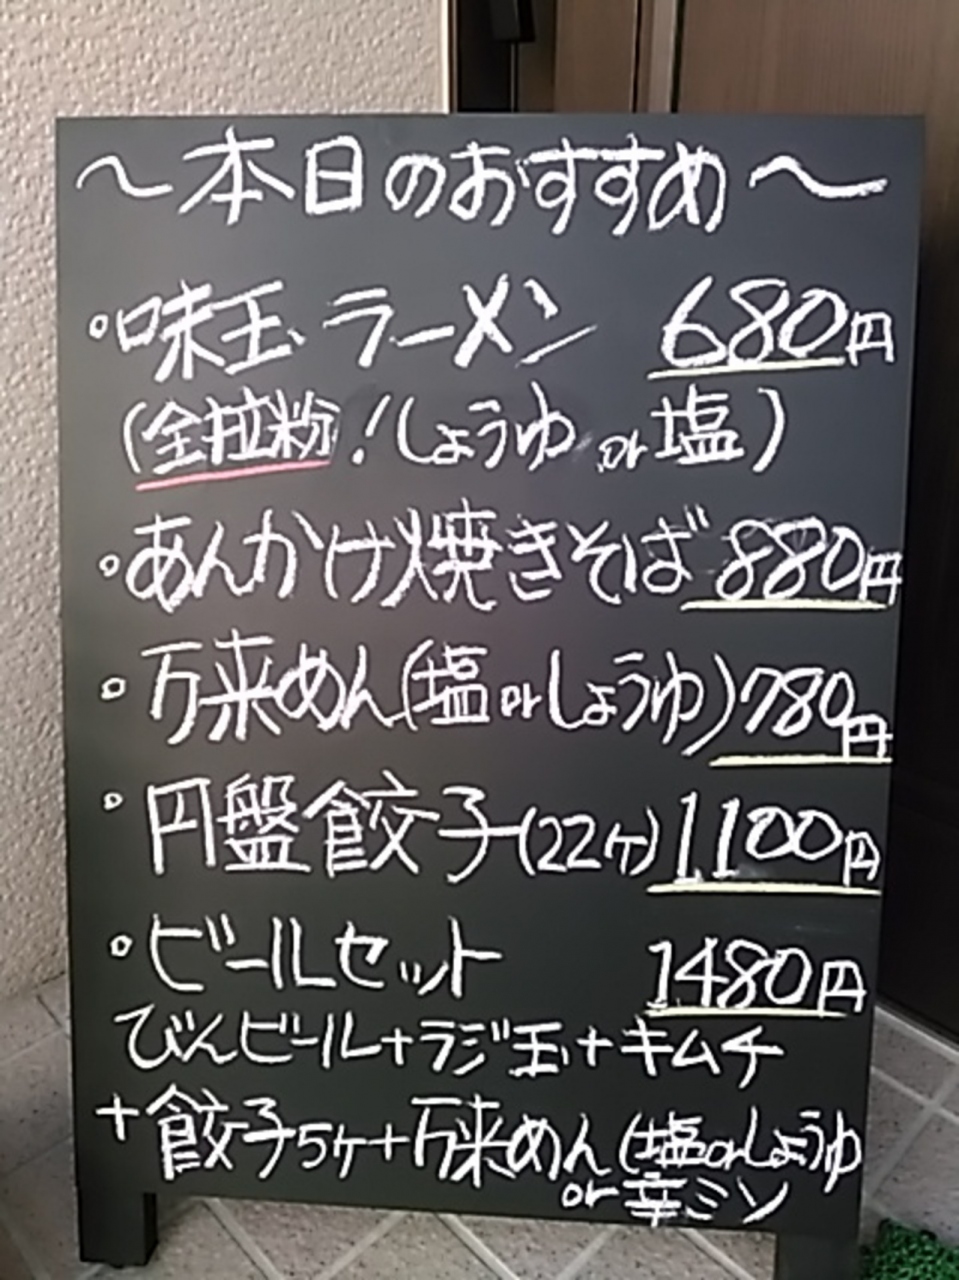 ～本日のおすすめ～
・味玉ラーメン 680円
(全粒粉!しょうゆor塩)
・あんかけ焼きそば 880円
・万来めん(塩orしょうゆ)780円
・円盤餃子(22ヶ)1,100円
・ビールセット 1480円
びんビール+ラジ玉+キムチ
+餃子5ヶ+万来めん(塩orしょうゆ
or辛ミソ